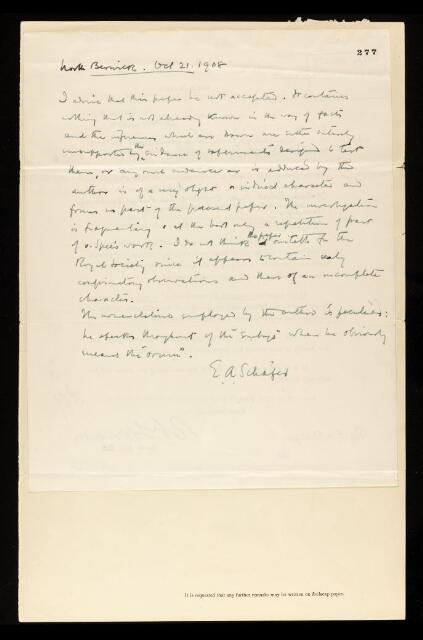 277
North Berwick. Oct 21. 1908
I advise that this paper be not accepted. It contains
nothing that is not already known in the way of facts
and the inferences which are drawn are either entirely
unsupported by the evidence of experiments designed to test
them, or any such evidence as is adduced by the
author is of a very slight & indirect character and
forms no part of the present paper. The investigation
is fragmentary & at the best only a repetition of part
of v. Spee's work. I do not think the paper suitable for the
Royal Society since it appears to contain only
confirmatory observations and those of an incomplete
character.
The nomenclature employed by the author is peculiar:
he speaks throughout of the "Embryo" where he obviously
means the "ovum".
E. A. Schäfer
It is requested that any further remarks may be written on foolscap paper.